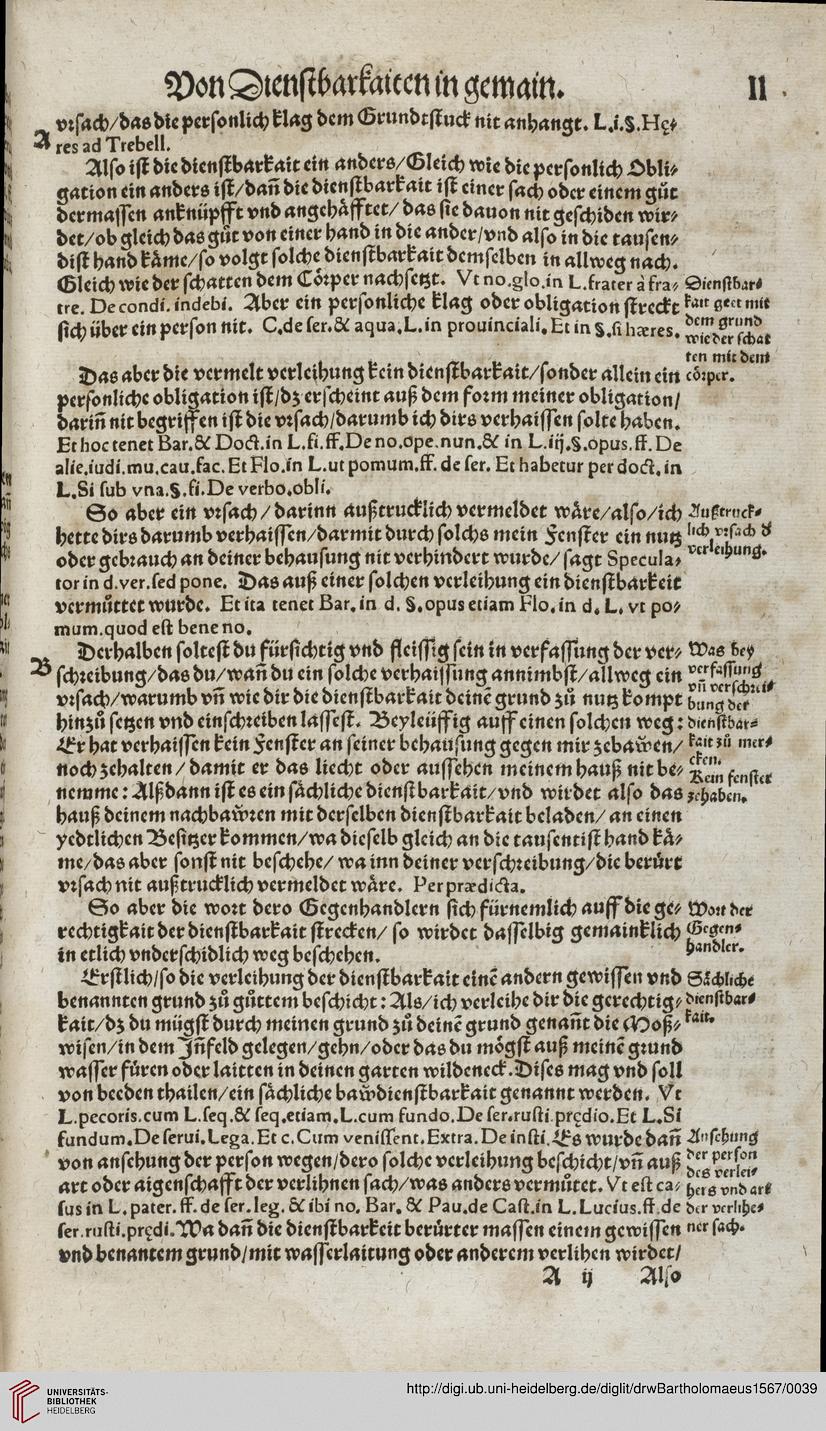 Von Dienstbarkaiten in gemain.
II
vrsach/das die personlich klag dem Grundtstuck nit anhangt. L.i.§.Hę-
A
res ad Trebell.
Also ist die dienstbarkait ein anders/Gleich wie die personlich Obli-
gation ein anders ist/dañ die dienstbarkait ist einer sach oder einem gůt
dermassen anknüpfft vnd angehäfftet/das sie dauon nit geschiden wir-
det/ob gleich das gůt von einer hand in die ander/vnd also in die tausen-
dist hand käme/so volgt solche dienstbarkait demselben in allweg nach.
Gleich wie der schatten dem Cörper nachsetzt. Vt no.glo.in L.frater à fra-
tre. De condi. indebi. Aber ein personliche klag oder obligation streckt
sich über ein person nit. C.de ser.& aqua.L.in prouinciali. Et in §.si hæres.
Dienstbar-
kait geet mit
dem grund
wie der schat
ten mit dem
cörper.
Das aber die vermelt verleihung kein dienstbarkait/sonder allein ein
personliche obligation ist/dz erscheint auß dem form meiner obligation/
dariñ nit begriffen ist die vrsach/darumb ich dirs verhaissen solte haben.
Et hoc tenet Bar.& Doct.in L.fi.ff.De no.ope.nun.& in L.iij.§.opus.ff. De
alie.iudi.mu.cau.fac. Et Flo.in L.ut pomum.ff. de ser. Et habetur per doct. in
L.Si sub vna.§.fi.De verbo.obli.
So aber ein vrsach / darinn außtrucklich vermeldet wäre/also/ich
hette dirs darumb verhaissen/darmit durch solchs mein Fenster ein nutz
oder gebrauch an deiner behausung nit verhindert wurde/ sagt Specula-
tor in d.ver.sed pone. Das auß einer solchen verleihung ein dienstbarkeit
vermůttet wurde. Et ita tenet Bar. in d. §.opus etiam Flo.in d. L. vt po-
mum.quod est bene no.
Außtruck-
lich vrsach d
verleihung.
Derhalben soltest du fürsichtig vnd fleissig sein in verfassung der ver-
B
schreibung/das du/wañ du ein solche verhaissung annimbst/allweg ein
vrsach/warumb vñ wie dir die dienstbarkait deinē grund zů nutz kompt
hinzů setzen vnd einschreiben lassest. Beyleüffig auff einen solchen weg:
Er hat verhaissen kein Fenster an seiner behausung gegen mir zebawen/
noch zehalten / damit er das liecht oder aussehen meinem hauß nit be-
nemme: Alßdann ist es ein sächliche dienstbarkait/vnd wirdet also das
hauß deinem nachbawren mit derselben dienstbarkait beladen/ an einen
yedtlichen Besitzer kommen/wa dieselb gleich an die tausentist hand kä-
me/das aber sonst nit beschehe/ wa inn deiner verschreibung/die berürt
vrsach nit außtrucklich vermeldet wäre. Per prædicta.
Was bey
verfassung
vñ verschrei-
bung der
dienstbar-
kait zů mer-
cken.
Kein fenster
zehaben.
So aber die wort dero Gegenhandlern sich fürnemlich auff die ge-
rechtigkait der dienstbarkait strecken/ so wirdet dasselbig gemainklich
in etlich vnderschidlich weg beschehen.
Wort der
Gegen-
handler.
Erstlich/so die verleihung der dienstbarkait einē andern gewissen vnd
benannten grund zů gůttem beschicht: Als/ich verleihe dir die gerechtig-
kait/dz du mügst durch meinen grund zů deinē grund genañt die Moß-
wisen/in dem Jñfeld gelegen/gehn/oder das du mögst auß meinē grund
wasser füren oder laitten in deinen garten wildeneck. Dises mag vnd soll
von beeden thailen/ein sächliche bawdienstbarkait genannt werden. Vt
L.pecoris.cum L.seq.& seq.etiam.L.cum fundo.De ser.rusti.prędio.Et L.Si
fundum.De serui.Lega.Et c.Cum venissent.Extra.De insti. Es wurde dañ
von ansehung der person wegen/dero solche verleihung beschicht/vñ auß
art oder aigenschafft der verlihnen sach/was anders vermůtet. Vt est ca-
sus in L. pater. ff. de ser.leg. & ibi no. Bar. & Pau.de Cast.in L.Lucius.ff.de
ser.rusti.prędi. Wa dañ die dienstbarkeit berürter massen einem gewissen
vnd benantem grund/mit wasserlaitung oder anderem verlihen wirdet/
Sächliche
dienstbar-
kait.
Ansehung
der person
des verlei-
hers vnd art
der verlihe-
ner sach.
A ij
Also
UNIVERSITÄTS-
BIBLIOTHEK
HEIDELBERG
http://digi.ub.uni-heidelberg.de/diglit/drwBartholomaeus1567/0039